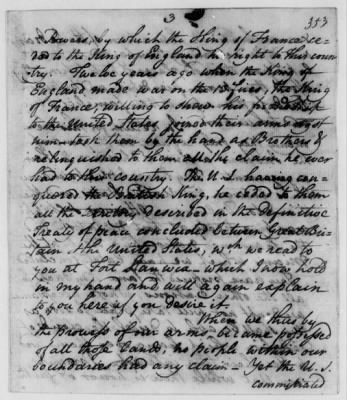 3
353
Powers, by which the King of France ce-
ded to the King of England the right to this coun-
try. Twelve years ago when the King of
England made war on the Big fires, the King
of France, willing to show his friendship
to the United States, joined their arms agst
him - took them by the hand as Brothers &
relinquished to them all the claim he ever
had to this country. The U.S. having con-
quered the British King, he ceded to them
all the territory described in the definitive
Treaty of peace concluded between Great Bri-
tain & the United States, wch we read to
you at Fort Stanwix - which I now hold
in my hand and will again explain
to you here if you desire it.
When we thus by
the Prowess of our arms became possessed
of all those Lands, no people within our
boundaries had any claim - Yet the U.S.
commiserated